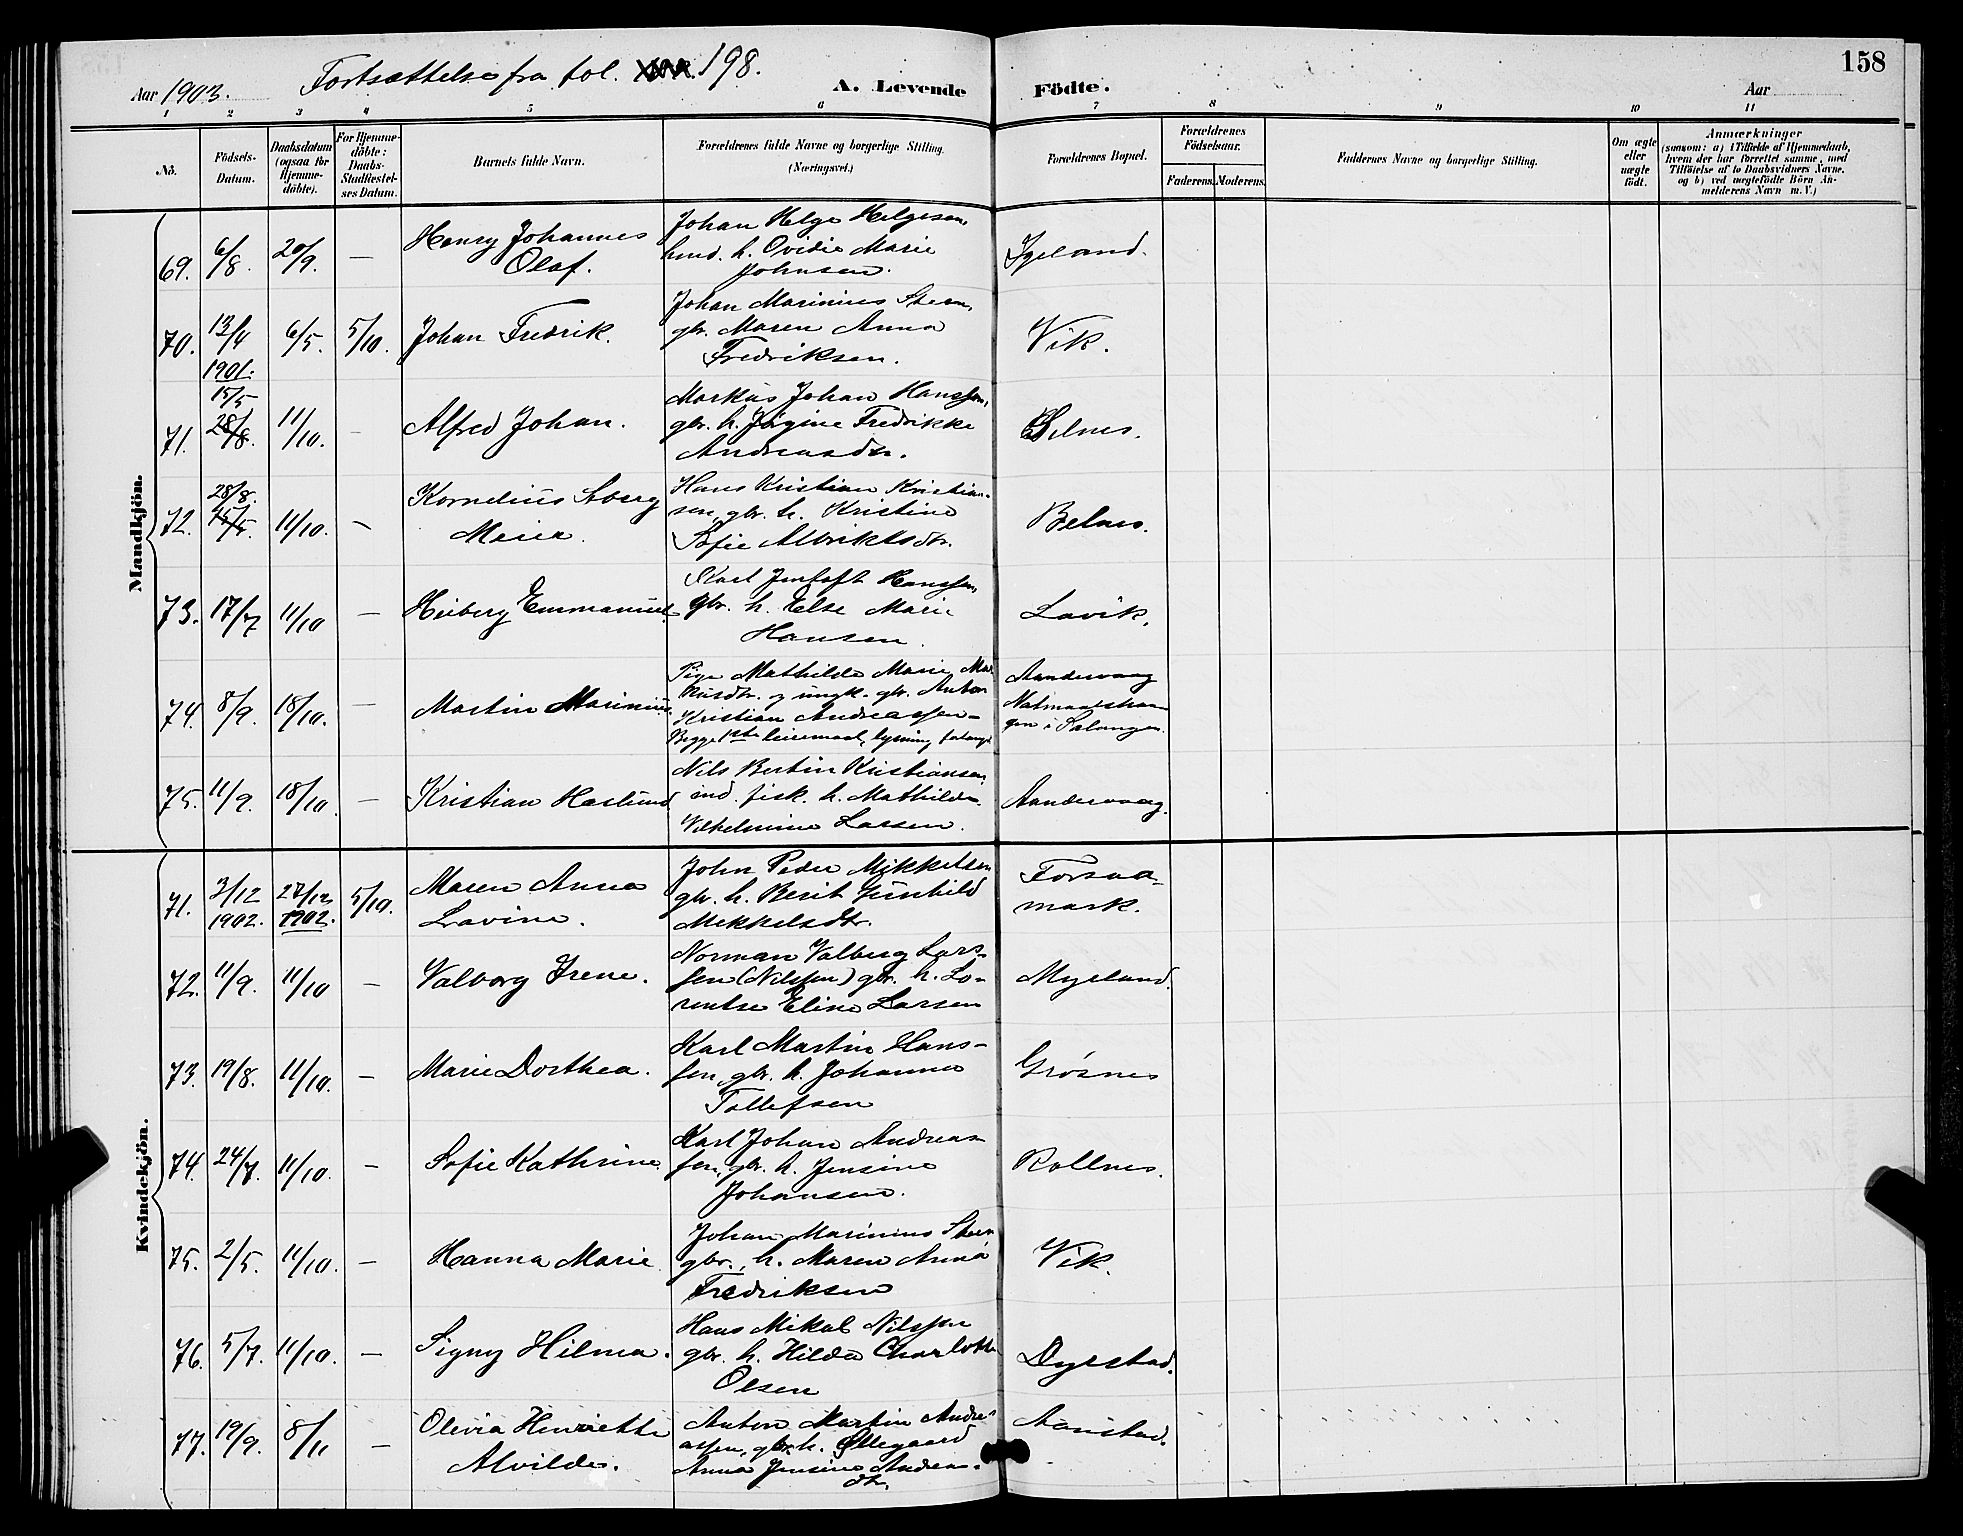 158
Aar 1903. Fortsættelse fra fol. 198. A. Levende Födte. Aar
1 2 3 4 5 6 7 8 9 10 11
No. Födsels-Datum. Daabsdatum (ogsaa for Hjemmedöbte). For Hjemmedöbte: Daabs-Stadfestelses Datum. Barnets fulde Navn. Forældrenes fulde Navne og borgerlige Stilling. (Næringsvei.) Forældrenes Bopæl. Forældrenes Födselsaar. Faderens. Moderens. Faddernes Navne og borgerlige Stilling. Om ægte eller uægte födt. Anmærkninger (saasom: a) i Tilfælde af Hjemmedaab, hvem der har forrettet samme, med Tilföielse af to Daabsvidners Navne, og b) ved uægtefödte Börn Anmelderens Navn m. V.)
Mandkjön.
69. 6/8. 20/9. — Henry Johannes Johan Helge Helgesen, Igeland.
Olaf. hmd. h. Ovidie Marie
Johnsen.
70. 13/4 6/5. 5/10. Johan Fredrik. Johan Marinius Steen, Vik.
1901. gbr. Maren Anna
Fredriksen.
71. 15/5 28/8. 11/10. — Alfred Johan. Markus Johan Hanssen, Selnes.
gbr. h. Jørgine Fredrikke
Andreasdtr.
72. 28/8. 15/5 11/10. — Kornelius Hans Kristian Kristian- Belnes.
Meier. sen, gbr. h. Kristine
Sofie Albriktsdtr.
73. 17/7 11/10 — Heiberg Emmanuel. Karl Hanssen, Lavik.
gbr. h. Else Marie
Hansen.
74. 8/9. 18/10. — Martin Marinius. Pige Mathilde Marie Mar- Aandervaag
kusdtr. og ungk. gbr. Anton
Kristian Andreassen i Salangen.
Begges 1ste leiermaal, lysning forlangt
75. 11/9. 18/10. — Kristian Haslund. Nils Bertin Kristiansen, Aandervaag.
ind. fisk. h. Mathilde
Vilhelmine Larsen.
Kvindekjön.
71. 3/12 27/12 5/10. Maren Anna John Peder Mikkelsen Forsaa-
1902. 1902. Lavine. gbr. h. Berit Gunhild mark.
Mekkelsdtr.
72. 11/9. 11/10 — Valborg Irene. Norman Valberg Lars- Myrland.
sen (Nilssen) gbr. h. Lo-
rentse Eline Larsen
73. 19/8. 11/10. — Marie Dorthea. Karl Martin Hans- Grøsnes
sen, gbr. h. Johanna
Tollefsen
74. 24/7. 11/10. — Sofie Kathrine Karl Johan Andreas- Rollnes.
sen, gbr. h. Jensine
Johansen.
75. 2/5. 11/10. — Hanna Marie Johan Marinius Steen Vik.
gbr., h. Maren Anna
Fredriksen
76. 5/7. 11/10. — Signy Hilma. Hans Mikal Nilssen Dyrstad.
gbr. h. Hilda Charlotte
Olsen
77. 19/9. 8/11 — Olivia Henriette Anton Martin Andre- Aanstad.
Alvilde. assen, gbr. h. Ollegaard
Anna Jensine Andreas-
dtr.